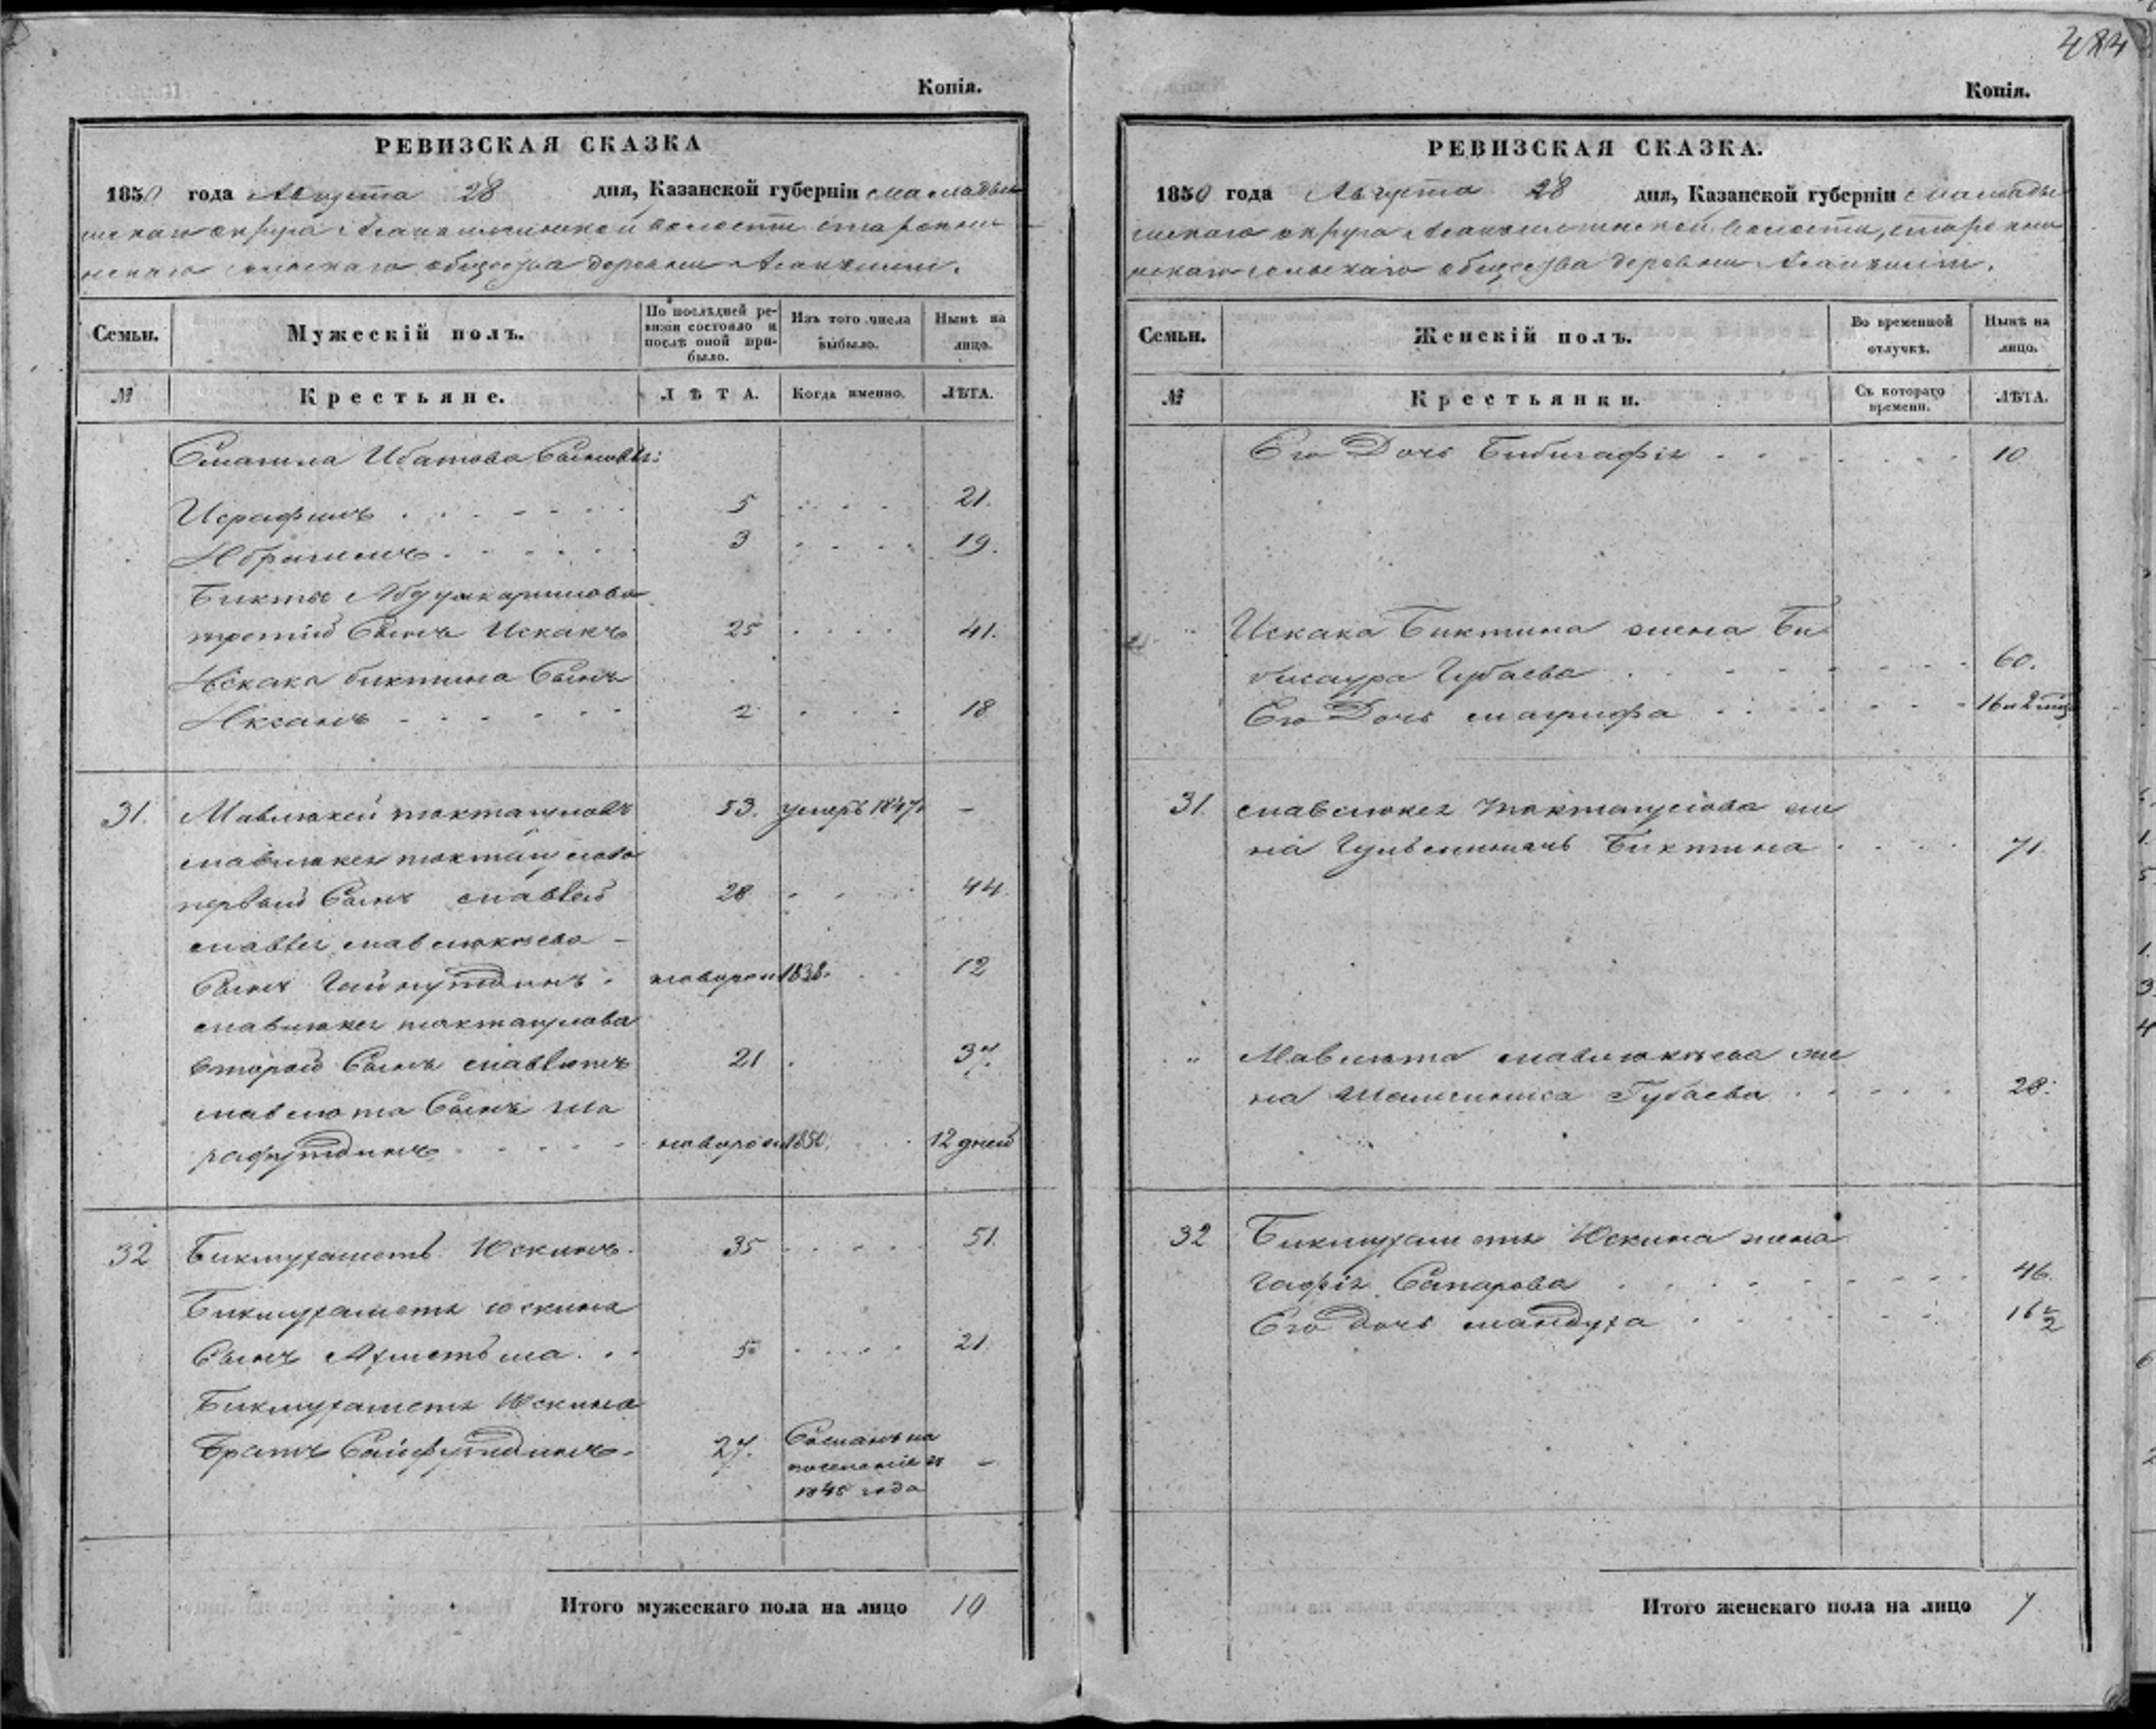 484
Копія.
РЕВИЗСКАЯ СКАЗКА
1850 года Августа 28 дня, Казанской губерніи Мамадыш
скаго округа волости
скаго сельскаго общества деревни
Семьи.
Мужескій полъ.
По послѣдней ре-
визіи состояло и
послѣ оной при-
было.
Изъ того числа
выбыло.
Нынѣ на
лицо.
№
Крестьяне.
ЛѢТА.
Когда именно.
ЛѢТА.
Смагила Ибатова Сыновья:
Исрафилъ 5 21.
Ибрагимъ 3 19.
Бикты Абдулкаримова
третій Сынъ Искакъ 25 41.
Искака биктина Сынъ
Иксанъ 2 18
31. Мавлюкей токтагуловъ 53. умеръ 1847 -
мавлюкея токтагулова
первый Сынъ мавлей 28 44.
мавлея мавлюкѣева
Сынъ Гайнутдинъ новорож 1838. 12
мавлюкея токтагулова
второй Сынъ мавлютъ 21 37.
мавлюта Сынъ ша
рафутдинъ новорож 1850. 12 дней
32 Бикмухаметъ Юскинъ. 35 51.
Бикмухаметя юскина
Сынъ Ахметьша. 5 21.
Бикмухаметя Юскина
Братъ Сайфутдинъ. 27. Сосланъ на
поселеніе въ -
1845 года
Итого мужескаго пола на лицо 10
Копія.
РЕВИЗСКАЯ СКАЗКА.
1850 года Августа 28 дня, Казанской губерніи Мамады
шскаго округа волости,
скаго сельскаго общества деревни
Семьи.
Женскій полъ.
Во временной
отлучкѣ.
Нынѣ на
лицо.
№
Крестьянки.
Съ котораго
времени.
ЛѢТА.
Его Дочь Бибигафія 10
Искака Биктина жена Би
Губаева 60.
Его Дочь магрифа
31. мавлюкея токтагулова же
на Биктина 71.
" Мавлюта мавлюкѣева же
на Губаева 28.
32 Бикмухаметя Юскина жена
гафія Сапарова 46.
Его дочь мандуха 16 ½
Итого женскаго пола на лицо 7